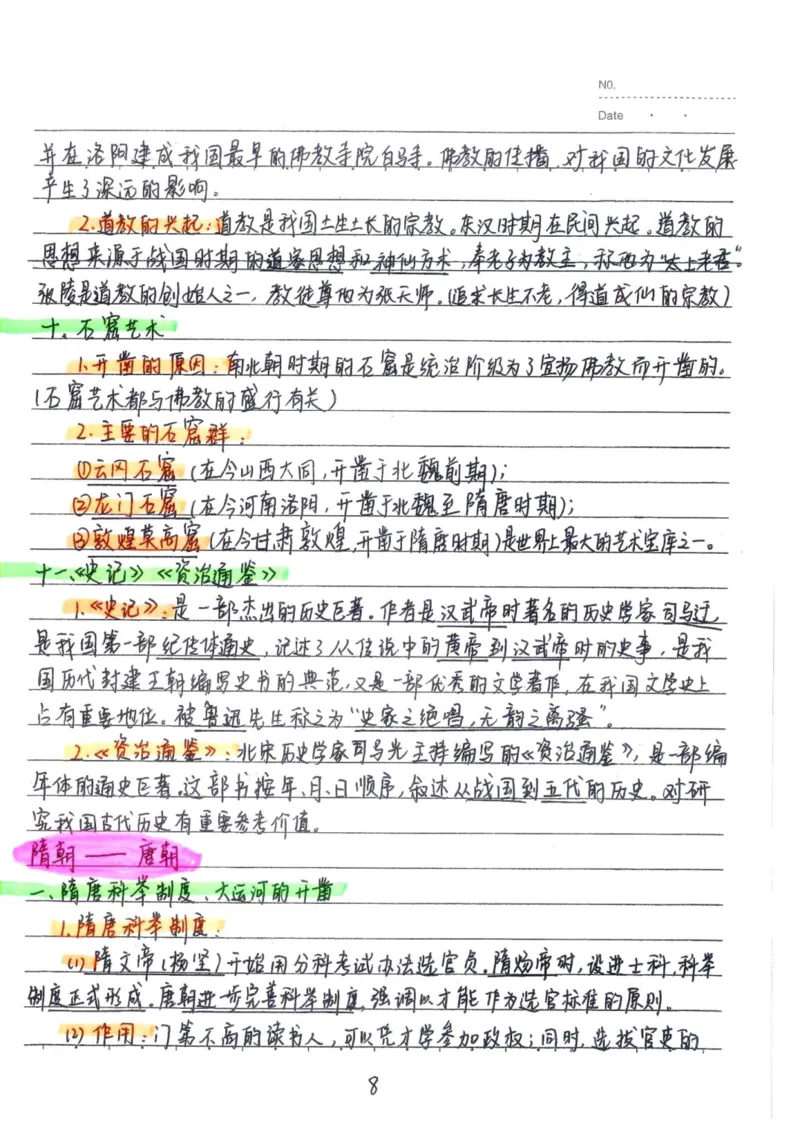 NO.
Date
并在洛阳建成我国最早的佛教寺院白马寺。佛教的传播,对我国的文化发展
产生了深远的影响。
2.道教的兴起:道教是我国土生土长的宗教。东汉时期在民间兴起。道教的
思想来源于战国时期的道家思想和神仙方术,奉老子为教主,称他为“太上老君”。
张陵是道教的创始人之一,教徒尊他为张天师。(追求长生不老,得道成仙的宗教)
十、石窟艺术
1.开凿的原因:南北朝时期的石窟是统治阶级为了宣扬佛教而开凿的。
(石窟艺术都与佛教的盛行有关)
2.主要的石窟群:
①云冈石窟(在今山西大同,开凿于北魏前期);
②龙门石窟(在今河南洛阳,开凿于北魏至隋唐时期);
③敦煌莫高窟(在今甘肃敦煌,开凿于隋唐时期)是世界上最大的艺术宝库之一。
十一、《史记》《资治通鉴》
1.《史记》:是一部杰出的历史巨著。作者是汉武帝时著名的历史学家司马迁,
是我国第一部纪传体通史,记述了从传说中的黄帝到汉武帝时的史事,是我
国历代封建王朝编写史书的典范,又是一部优秀的文学著作,在我国文学史上
占有重要地位。被鲁迅先生称之为“史家之绝唱,无韵之离骚”。
2.《资治通鉴》:北宋历史学家司马光主持编写的《资治通鉴》,是一部编
年体的通史巨著。这部书按年、月、日顺序,叙述从战国到五代的历史。对研
究我国古代历史有重要参考价值。
隋朝——唐朝
一、隋唐科举制度、大运河的开凿
1.隋唐科举制度:
(1)隋文帝(杨坚)开始用分科考试办法选官员。隋炀帝时,设进士科,科举
制度正式形成。唐朝进一步完善科举制度,强调以才能作为选官标准的原则。
(2)作用:门第不高的读书人,可以凭才学参加政权;同时,选拔官吏的
8